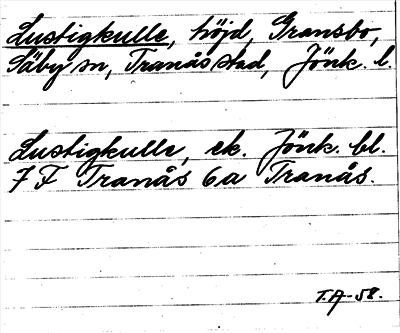 Lustigkulle, höjd, Gransbo,
Säby sn, Tranås stad, Jönk. l.
Lustigkulle, ek. Jönk. bl.
7 F Tranås 6a Tranås.
T.A-58.